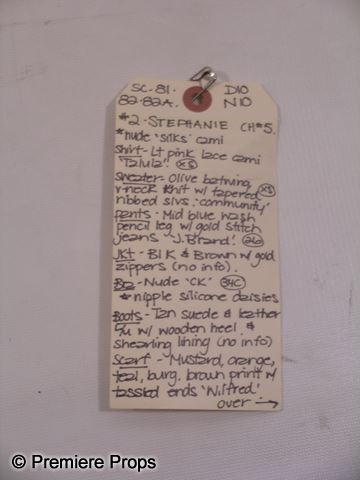 SC. 81. D10
82. 82A. N10
#2. STEPHANIE CH#5.
*nude 'silks' cami
Shirt - Lt pink lace cami
'Talula'. XS
Sweater - Olive batwing
v-neck knit w/ tapered XS
ribbed slvs. 'community'
Pants - Mid blue wash
pencil leg w/ gold stitch
jeans 'J. Brand'. 26
JKT - Blk & Brown w/ gold
zippers (no info).
Bra - Nude 'CK' 34C
* nipple silicone daisies
Boots - Tan suede & leather
w/ wooden heel &
shearling lining (no info)
Scarf - Mustard, orange,
teal, burg. brown print w/
tassled ends 'Wilfred'
over →
© Premiere Props